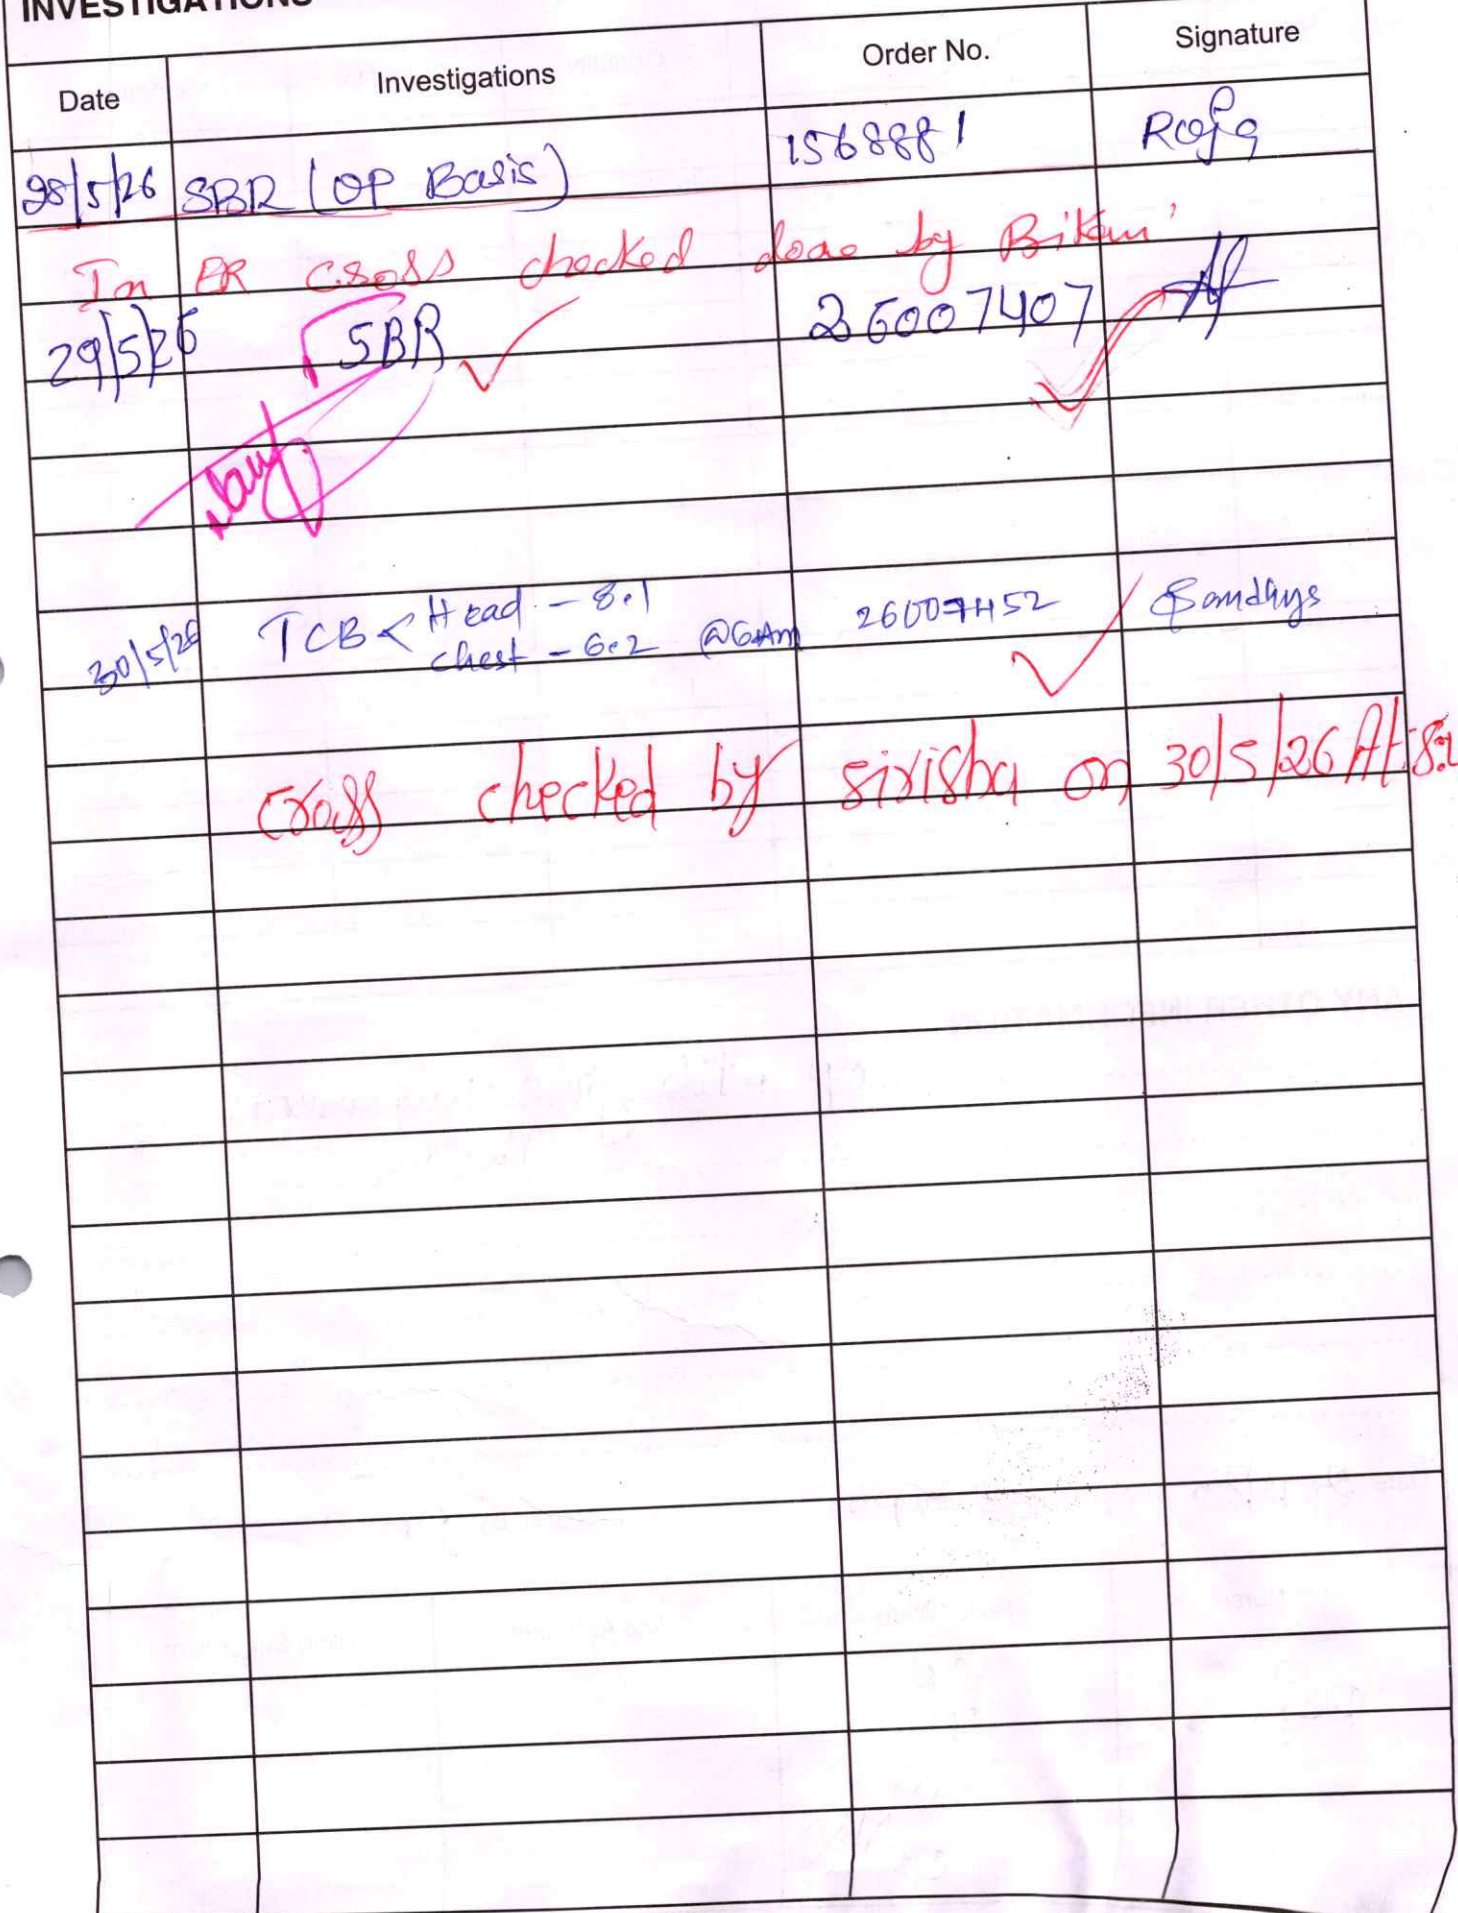 INVESTIGATIONS
Date Investigations Order No. Signature
28/5/26 SBR (OP Basis) 1568881 Roja
In ER cross checked done by
29/5/26 SBR 26007407
30/5/26 TCB < Head - 8.1 26007452
chest - 6.2 @6Am
cross checked by sirisha on 30/5/26 At